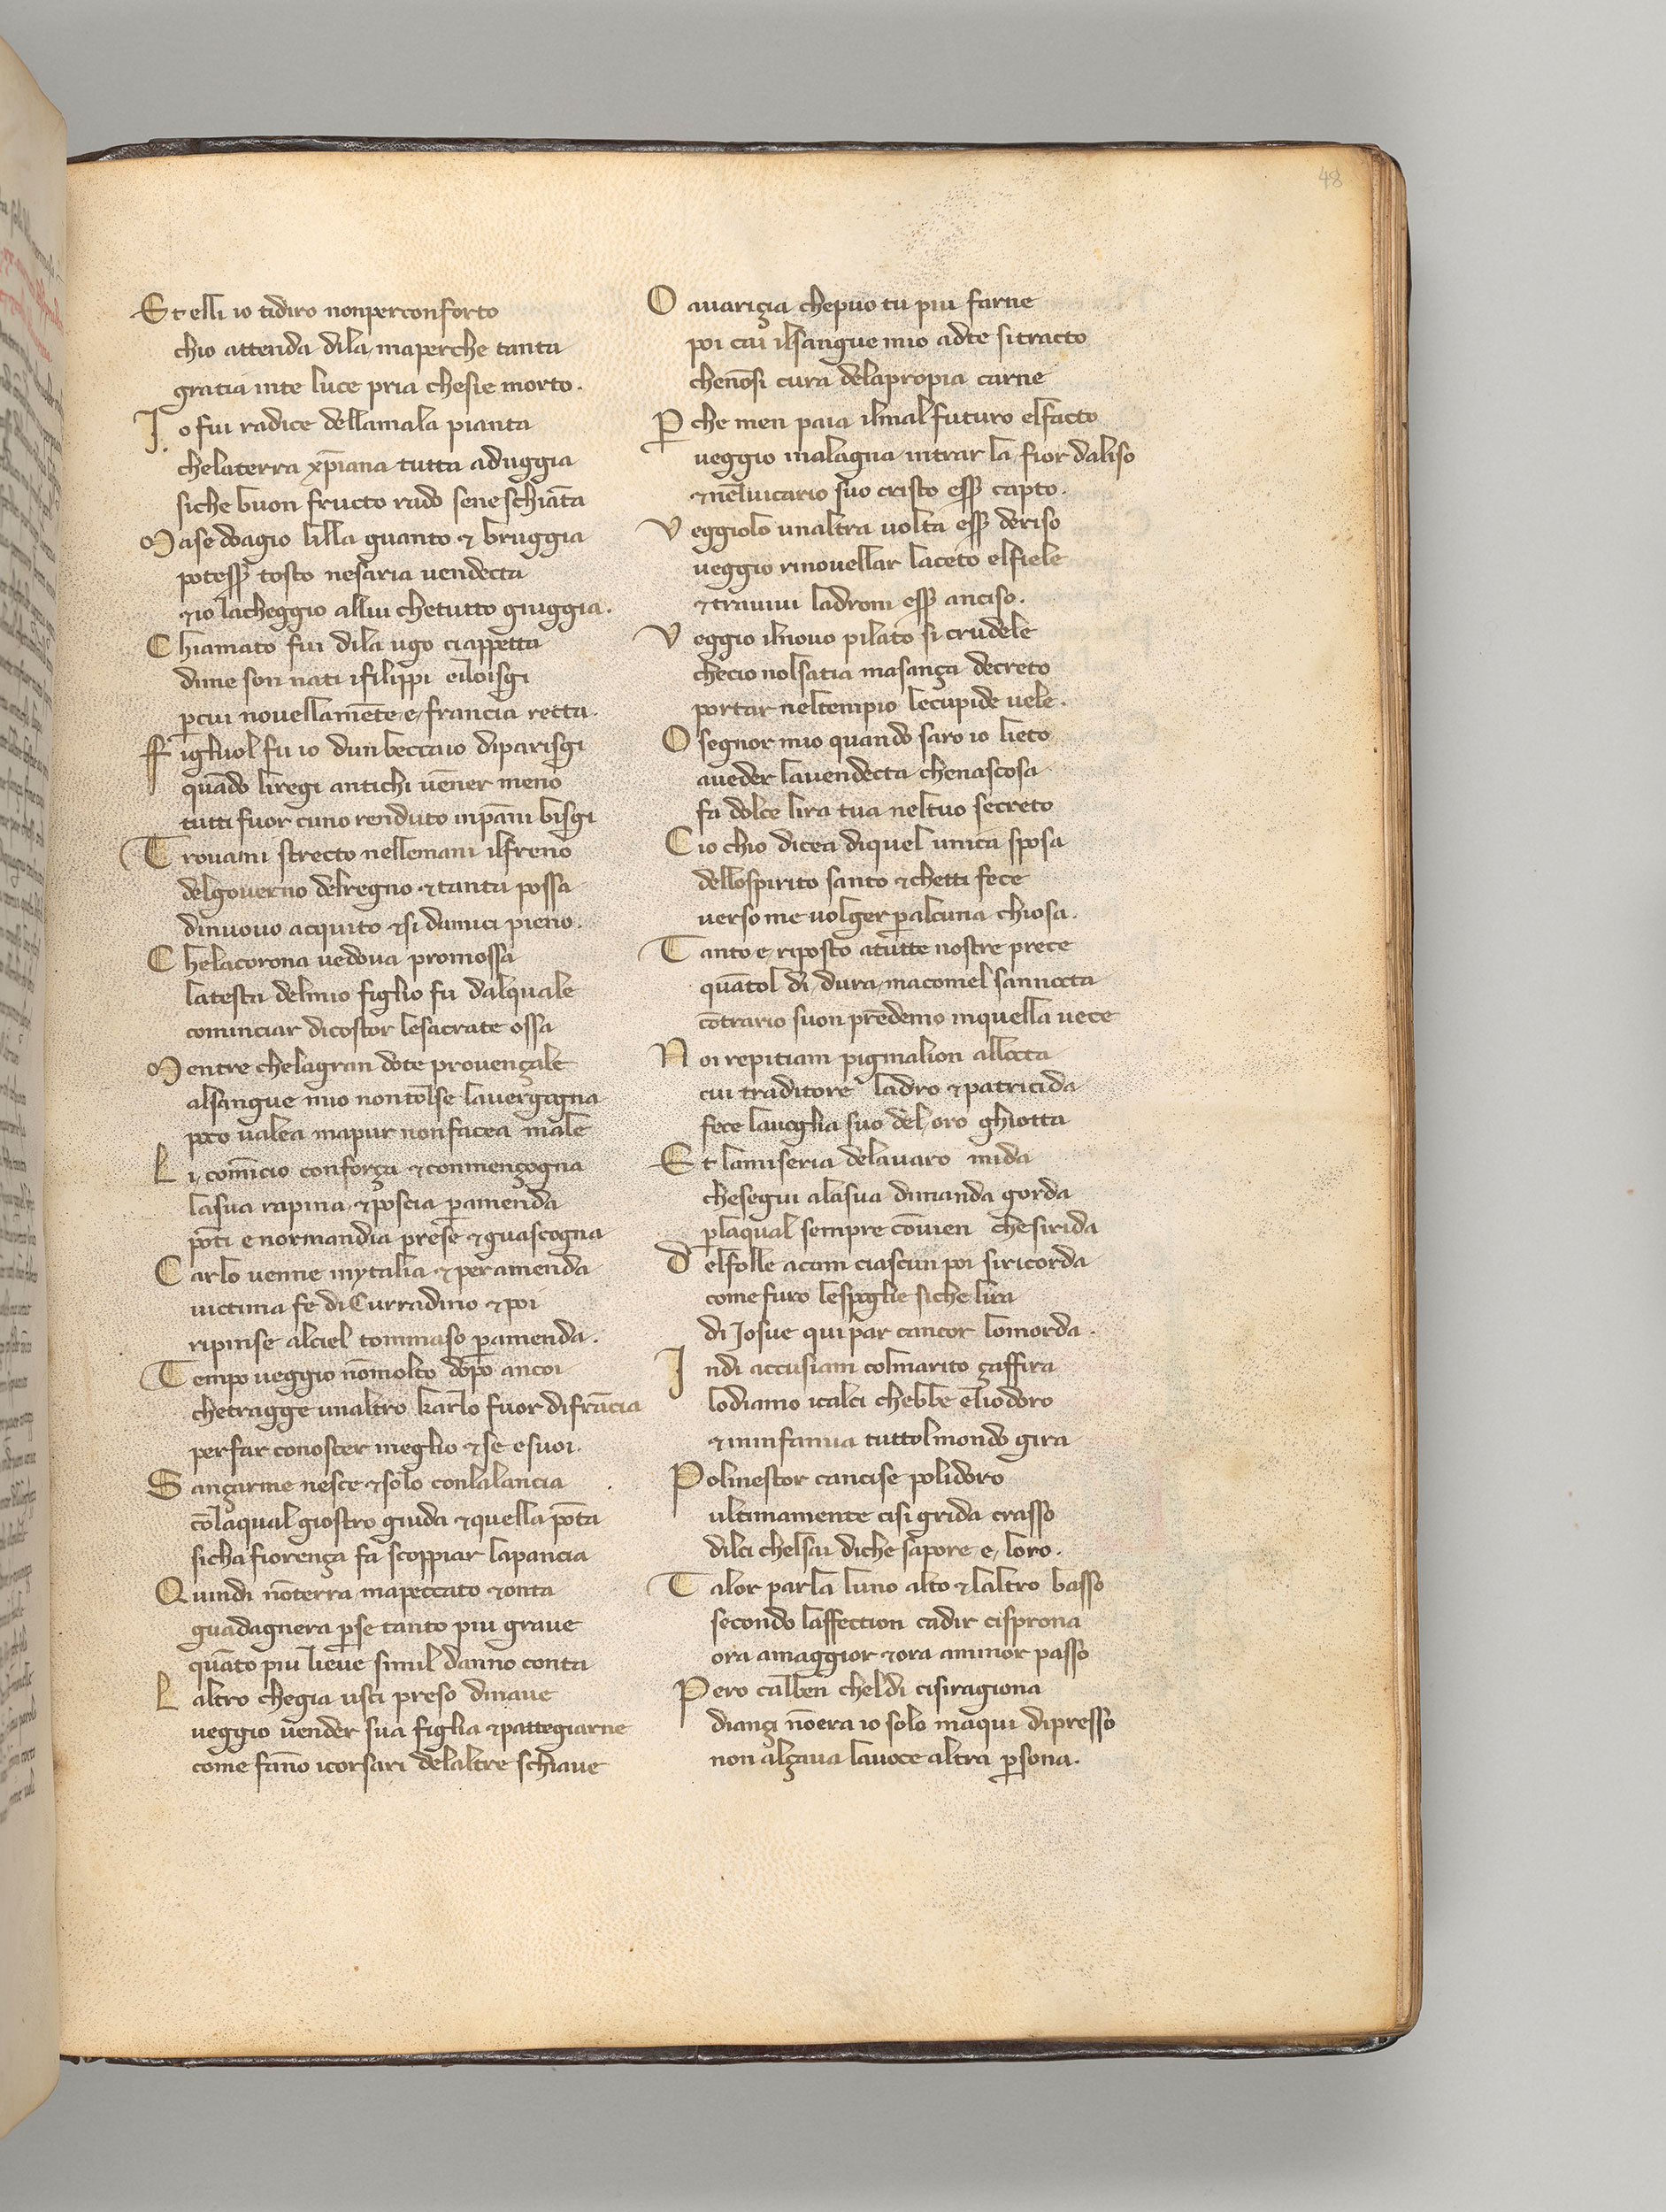 48
Et elli io tidiro nonperconforto
chio attenda dila maperche tanta
gratia inte luce pria chesie morto.
Io fui radice dellamala pianta
chelaterra xp̄iana tutta aduggia
siche buon fructo rado sene schianta
Mase doagio lilla guanto & bruggia
potess̄ tosto nesaria uendecta
& io lacheggio allui chetutto giuggia.
Chiamato fui dila ugo ciappetta
dime son nati ifilippi eiloisgi
p̄cui nouellamēte e francia retta.
Figluol fu io dun beccaio diparisgi
quādo liregi antichi uēner meno
tutti fuor cuno renduto inpāni bisgi
Trouami strecto nellemani ilfreno
delgouerno delregno & tanta possa
dinuouo acquito & si damici pieno.
Chelacorona uedoua promossa
latesta delmio figlio fu dalquale
cominciar dicostor lesacrate ossa
Mentre chelagran dote prouençale
alsangue mio nontolse lauergogna
poco ualea mapur nonfacea male
Li comīcio conforça & conmençogna
lasua rapina & poscia p̄amenda
pōti e normandia prese & guascogna
Carlo uenne inytalia & peramenda
uictima fe di Curradino & poi
ripinse alciel tommaso p̄amenda.
Tempo ueggio nōmolto dopo ancoi
chetragge unaltro karlo fuor difrācia
perfar conoscer meglio & se esuoi.
Sançarme nesce & solo conlalancia
cōlaqual giostro giuda & quella pōta
sicha fiorença fa scoppiar lapancia
Quindi nōterra mapeccato & onta
guadagnera p̄se tanto piu graue
quāto piu lieue simil danno conta
Laltro chegia usci preso dinaue
ueggio uender sua figlia & pattegiarne
come fāno icorsari delaltre schiaue
O auariçia chepuo tu piu farne
poi cai ilsangue mio adte sitracto
chenōsi cura delapropia carne
P̄che men paia ilmal futuro elfacto
ueggio inalagna intrar la fior daliso
& nel uicario suo cristo ess̄ capto.
Veggiolo unaltra uolta ess̄ deriso
ueggio rinouellar laceto elfiele
& trauiui ladroni ess̄ anciso.
Veggio ilnouo pilato si crudele
checio nolsatia masança decreto
portar neltempio lecupide uele.
O segnor mio quando saro io lieto
aueder lauendecta chenascosa
fa dolce lira tua neltuo secreto
Cio chio dicea diquel unica sposa
dellospirito santo & chetti fece
uerso me uolger p̄alcuna chiosa.
Tanto e riposto atutte nostre prece
quātol di dura macomel sannocta
cōtrario suon prēdemo inquella uece
Noi repitiam pigmalion allocta
cui traditore ladro & patricida
fece lauoglia suo del oro ghiotta
Et lamiseria delauaro mida
chesegui alasua dimanda gorda
p̄laqual sempre cōuien chesirida
Delfolle acam ciascun poi siricorda
come furo lespoglie siche lira
di Josue qui par cancor lomorda.
Indi accusiam colmarito çaffira
lodiamo icalci chebbe eliodoro
& ininfamia tuttolmondo gira
Polinestor cancise polidoro
ultimamente cisi grida crasso
dilci chelsai diche sapore e loro.
Talor parla luno alto & laltro basso
secondo laffection cadir cisprona
ora amaggior & ora aminor passo
Pero calben cheldi cisiragiona
diançi nōera io solo maqui dipresso
non alçaua lauoce altra p̄sona.